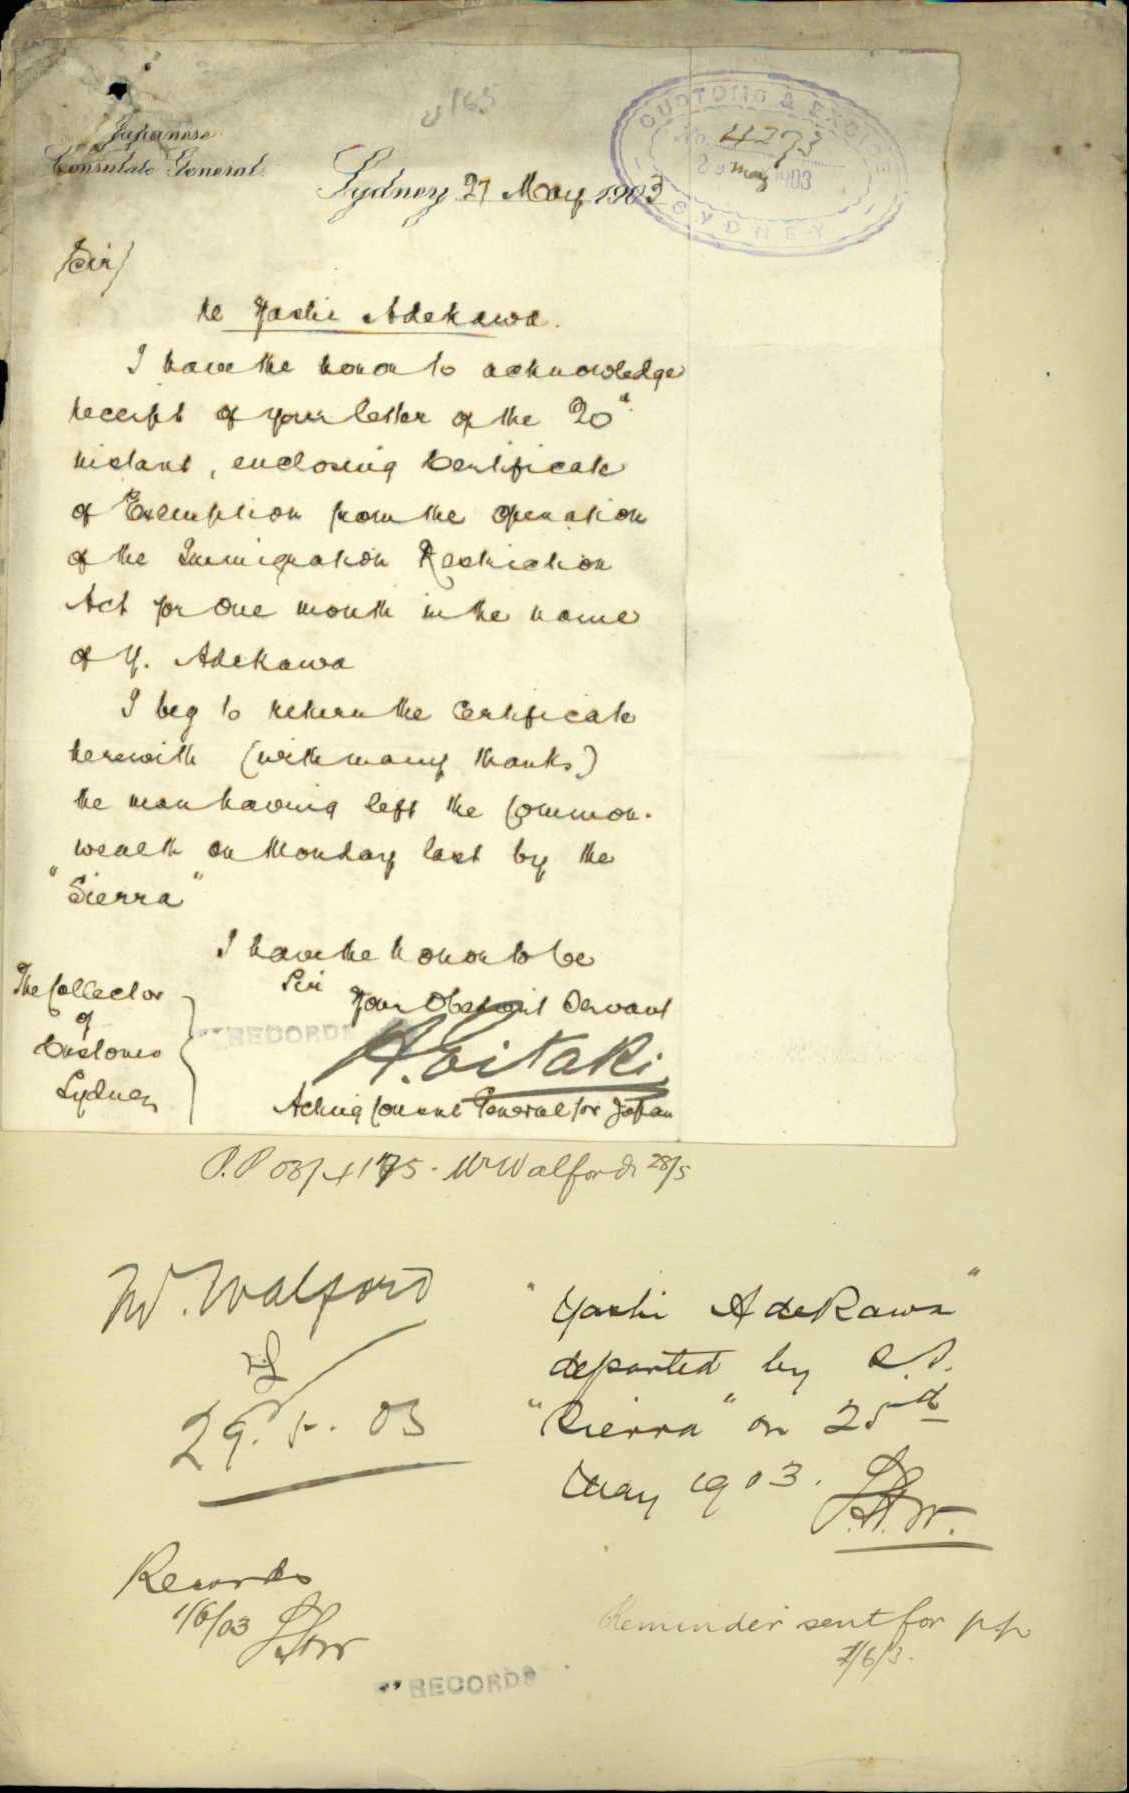 Japanese
Consulate General.
Sydney 27 May 1903
CUSTOMS & EXCISE
No. 4273
28 May 1903
SYDNEY
Sir/
re Yashi Adekawa.
I have the honor to acknowledge
receipt of your letter of the 20th
instant, enclosing Certificate
of Exemption from the operation
of the Immigration Restriction
Act for one month in the name
of Y. Adekawa
I beg to return the Certificate
herewith (with many thanks)
the man having left the Common-
wealth on Monday last by the
"Sierra"
I have the honor to be
Sir
Your Obedient Servant
A. Eitaki
Acting Consul General for Japan
The Collector
of
Customs
Sydney
RECORDS
P.P 03/4175. Mr Walford 28/5
Mr. Walford
29.5.03
"Yashi Adekawa"
departed by S.S.
"Sierra" on 25th
May 1903.
Records
1/6/03
Reminder sent for pp
RECORDS